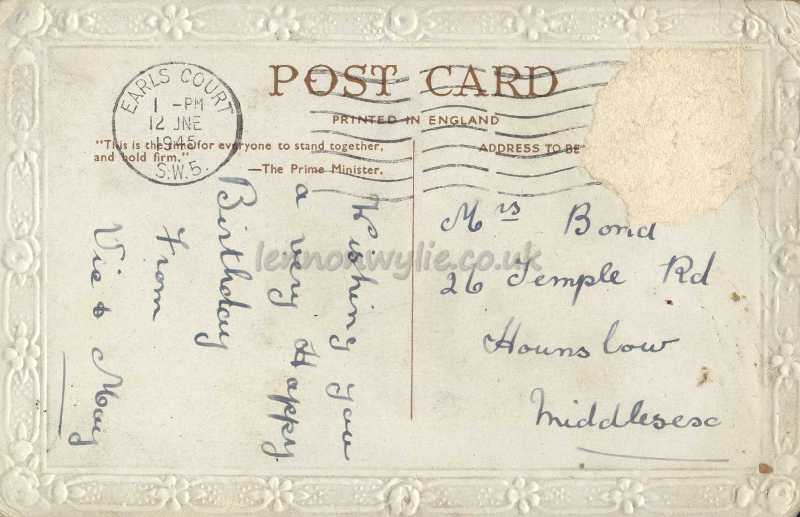 POST CARD
PRINTED IN ENGLAND
EARLS COURT
1 -PM
12 JNE
1945
S.W.5.
"This is the time for everyone to stand together,
and hold firm."
—The Prime Minister.
ADDRESS TO BE
Wishing you
a very Happy
Birthday
From
Vic & May
Mrs Bond
26 Temple Rd
Hounslow
Middlesex
lennonwylie.co.uk